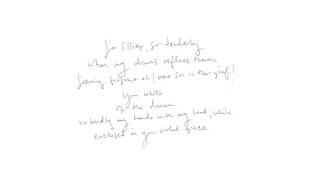 So lillies, so tenderly
when my drums reflect them
seeming fragrant oh! were son in their grief!
You white
of the dream
unbodily my hands with my head, while
enclosed in your violet space